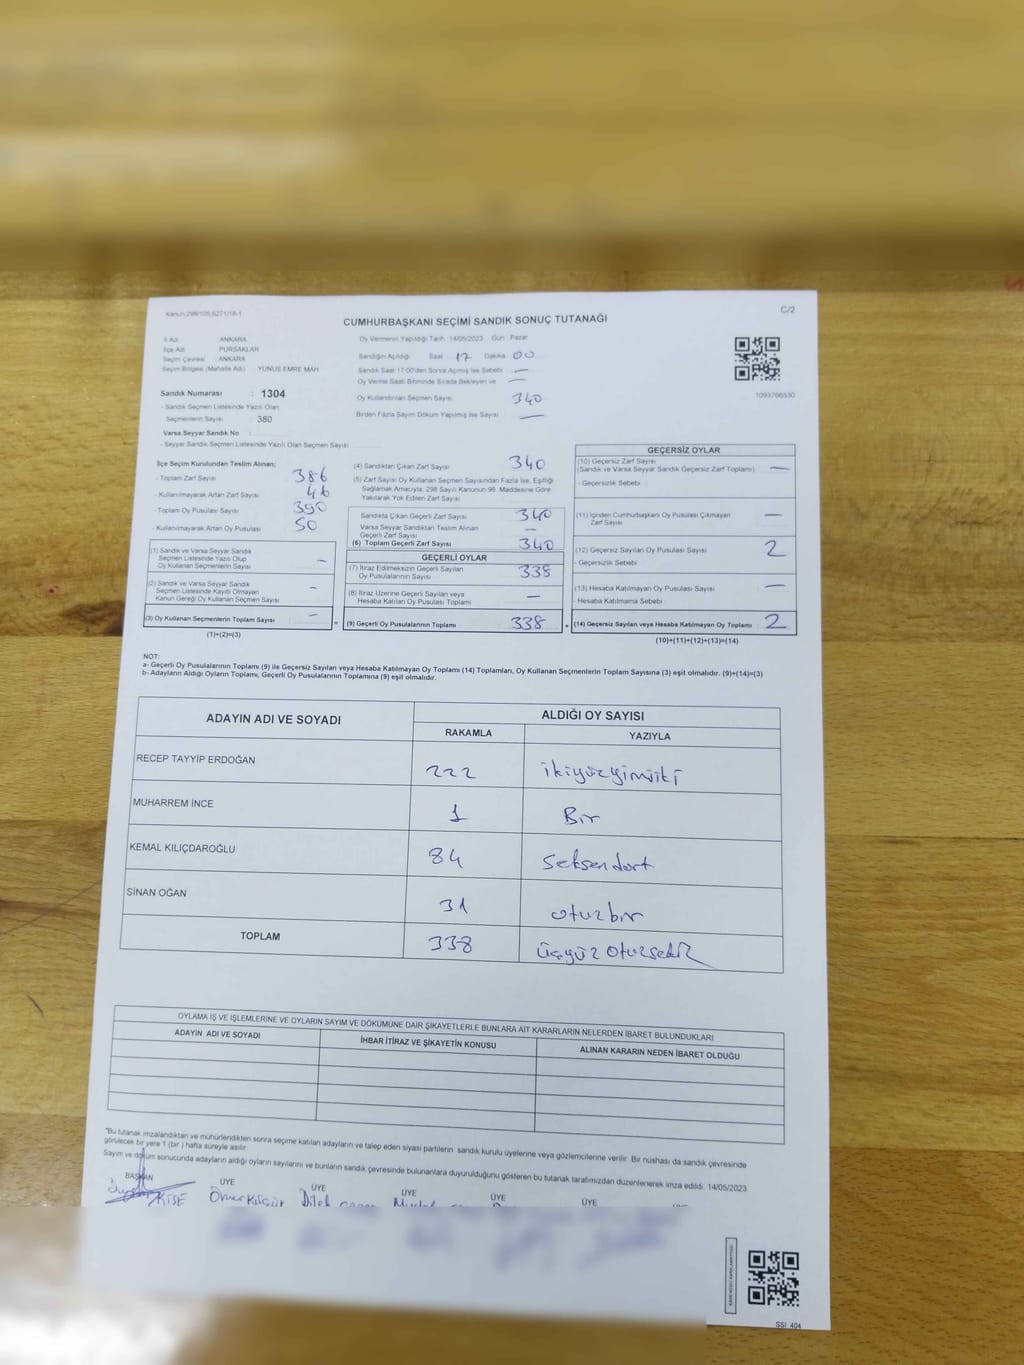 Kanun,298/105,6271/18-1
C/2
CUMHURBAŞKANI SEÇİMİ SANDIK SONUÇ TUTANAĞI
İl Adı ANKARA
İlçe Adı PURSAKLAR
Seçim Çevresi : ANKARA
Seçim Bölgesi (Mahalle Adı) YUNUS EMRE MAH
Sandık Numarası : 1304
- Sandık Seçmen Listesinde Yazılı Olan
Seçmenlerin Sayısı : 380
Varsa Seyyar Sandık No
- Seyyar Sandık Seçmen Listesinde Yazılı Olan Seçmen Sayısı
Oy Vermenin Yapıldığı Tarih :14/05/2023 Gün : Pazar
Sandığın Açıldığı Saat 17 Dakika 00
Sandık Saat 17:00'den Sonra Açılmış İse Sebebi —
Oy Verme Saati Bitiminde Sırada Bekleyen ve —
Oy Kullandırılan Seçmen Sayısı 340
Birden Fazla Sayım Döküm Yapılmış İse Sayısı —
1093766530
İlçe Seçim Kurulundan Teslim Alınan;
- Toplam Zarf Sayısı 386
- Kullanılmayarak Artan Zarf Sayısı 46
- Toplam Oy Pusulası Sayısı 390
- Kullanılmayarak Artan Oy Pusulası 50
(1) Sandık ve Varsa Seyyar Sandık
Seçmen Listesinde Yazılı Olup
Oy Kullanan Seçmenlerin Sayısı —
(2) Sandık ve Varsa Seyyar Sandık
Seçmen Listesinde Kayıtlı Olmayan
Kanun Gereği Oy Kullanan Seçmen Sayısı —
(3) Oy Kullanan Seçmenlerin Toplam Sayısı —
(1)+(2)=(3)
(4) Sandıktan Çıkan Zarf Sayısı 340
(5) Zarf Sayısı Oy Kullanan Seçmen Sayısından Fazla İse, Eşitliği
Sağlamak Amacıyla, 298 Sayılı Kanunun 98. Maddesine Göre
Yakılarak Yok Edilen Zarf Sayısı
Sandıkta Çıkan Geçerli Zarf Sayısı 340
Varsa Seyyar Sandıktan Teslim Alınan
Geçerli Zarf Sayısı —
(6) Toplam Geçerli Zarf Sayısı 340
GEÇERLİ OYLAR
(7) İtiraz Edilmeksizin Geçerli Sayılan
Oy Pusulalarının Sayısı 338
(8) İtiraz Üzerine Geçerli Sayılan veya
Hesaba Katılan Oy Pusulası Toplamı —
= (9) Geçerli Oy Pusulalarının Toplamı 338
GEÇERSİZ OYLAR
(10) Geçersiz Zarf Sayısı
(Sandık ve Varsa Seyyar Sandık Geçersiz Zarf Toplamı) —
- Geçersizlik Sebebi
(11) İçinden Cumhurbaşkanı Oy Pusulası Çıkmayan
Zarf Sayısı —
(12) Geçersiz Sayılan Oy Pusulası Sayısı 2
- Geçersizlik Sebebi
(13) Hesaba Katılmayan Oy Pusulası Sayısı —
Hesaba Katılmama Sebebi
+ (14) Geçersiz Sayılan veya Hesaba Katılmayan Oy Toplamı 2
(10)+(11)+(12)+(13)=(14)
NOT:
a- Geçerli Oy Pusulalarının Toplamı (9) ile Geçersiz Sayılan veya Hesaba Katılmayan Oy Toplamı (14) Toplamları, Oy Kullanan Seçmenlerin Toplam Sayısına (3) eşit olmalıdır. (9)+(14)=(3)
b- Adayların Aldığı Oyların Toplamı, Geçerli Oy Pusulalarının Toplamına (9) eşit olmalıdır.
ADAYIN ADI VE SOYADI ALDIĞI OY SAYISI
RAKAMLA YAZIYLA
RECEP TAYYİP ERDOĞAN 222 ikiyüzyirmiiki
MUHARREM İNCE 1 Bir
KEMAL KILIÇDAROĞLU 84 seksendört
SİNAN OĞAN 31 otuzbir
TOPLAM 338 üçyüz otuzsekiz
OYLAMA İŞ VE İŞLEMLERİNE VE OYLARIN SAYIM VE DÖKÜMÜNE DAİR ŞİKAYETLERLE BUNLARA AİT KARARLARIN NELERDEN İBARET BULUNDUKLARI
ADAYIN ADI VE SOYADI İHBAR İTİRAZ VE ŞİKAYETİN KONUSU ALINAN KARARIN NEDEN İBARET OLDUĞU
"Bu tutanak imzalandıktan ve mühürlendikten sonra seçime katılan adayların ve talep eden siyasi partilerin sandık kurulu üyelerine veya gözlemcilerine verilir. Bir nüshası da sandık çevresinde
görülecek bir yere 1 (bir) hafta süreyle asılır.
Sayım ve döküm sonucunda adayların aldığı oyların sayılarını ve bunların sandık çevresinde bulunanlara duyurulduğunu gösteren bu tutanak tarafımızdan düzenlenerek imza edildi. 14/05/2023
BAŞKAN ÜYE ÜYE ÜYE ÜYE ÜYE
KÖSE Ömer Dilek
SSI 404